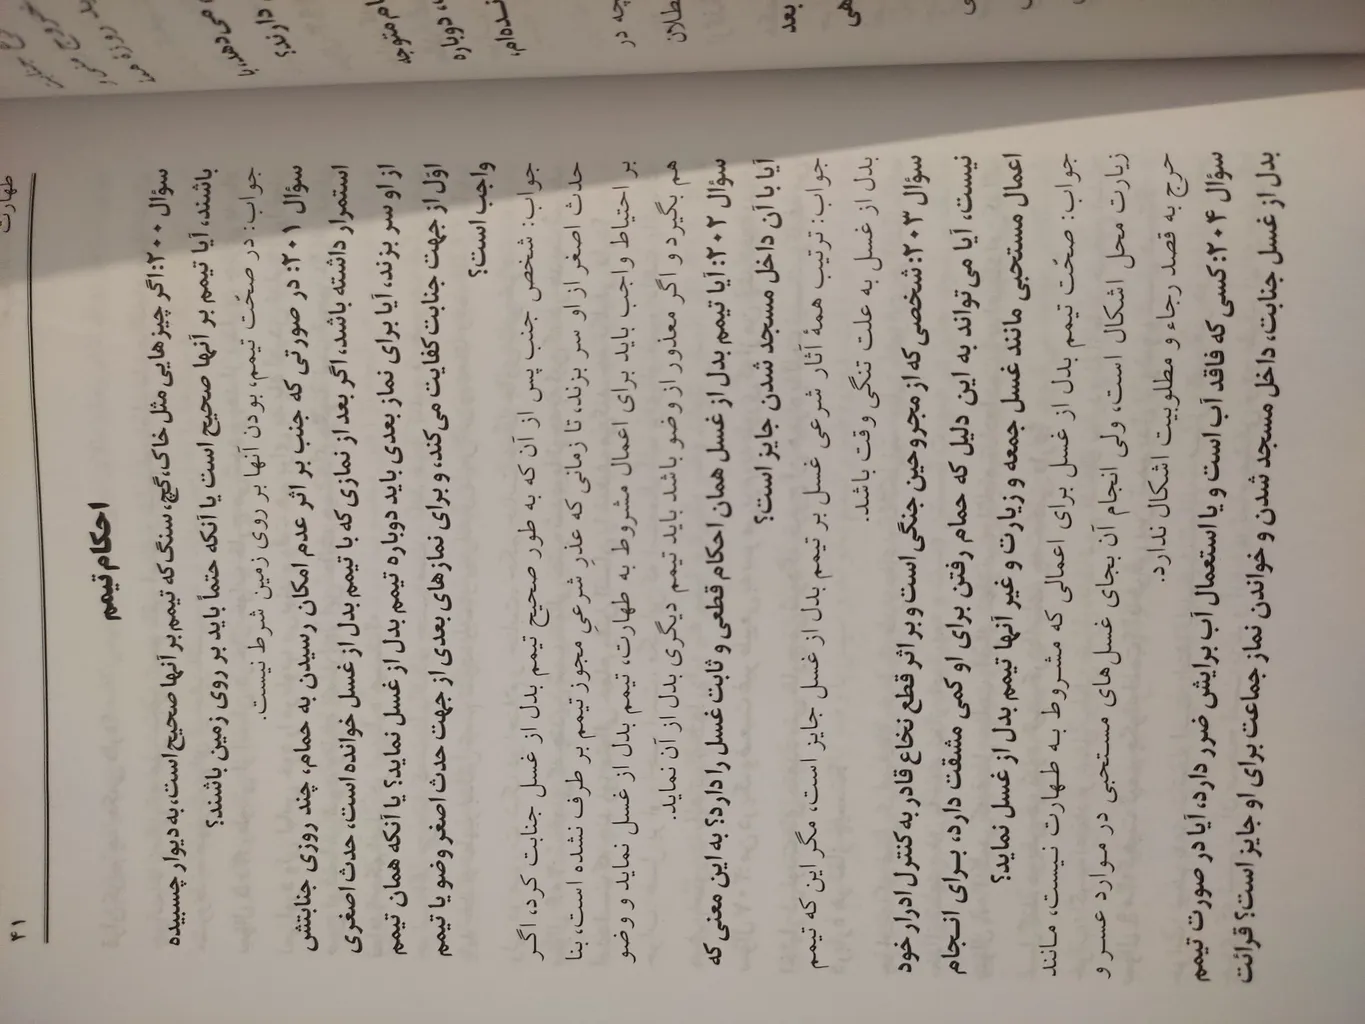 طهارت
۴۱
احکام تیمم
سؤال ۲۰۰: اگر چیزهایی مثل خاک، گچ، سنگ که تیمم بر آنها صحیح است، به دیوار چسبیده
باشند، آیا تیمم بر آنها صحیح است یا آنکه حتماً باید بر روی زمین باشند؟
جواب: در صحّت تیمم، بودن آنها بر روی زمین شرط نیست.
سؤال ۲۰۱: در صورتی که جنب بر اثر عدم امکان رسیدن به حمام، چند روزی جنابتش
استمرار داشته باشد، اگر بعد از نمازی که با تیمم بدل از غسل خوانده است، حدث اصغری
از او سر بزند، آیا برای نماز بعدی باید دوباره تیمم بدل از غسل نماید؟ یا آنکه همان تیمم
اوّل از جهت جنابت کفایت می‌کند، و برای نمازهای بعدی از جهت حدث اصغر وضو یا تیمم
واجب است؟
جواب: شخص جنب پس از آن که به طور صحیح تیمم بدل از غسل جنابت کرد، اگر
حدث اصغر از او سر بزند، تا زمانی که عذرِ شرعیِ مجوز تیمم بر طرف نشده است، بنا
بر احتیاط واجب باید برای اعمال مشروط به طهارت، تیمم بدل از غسل نماید و وضو
هم بگیرد و اگر معذور از وضو باشد باید تیمم دیگری بدل از آن نماید.
سؤال ۲۰۲: آیا تیمم بدل از غسل همان احکام قطعی و ثابت غسل را دارد؟ به این معنی که
آیا با آن داخل مسجد شدن جایز است؟
جواب: ترتیب همهٔ آثار شرعی غسل بر تیمم بدل از غسل جایز است، مگر این که تیمم
بدل از غسل به علت تنگی وقت باشد.
سؤال ۲۰۳: شخصی که از مجروحین جنگی است و بر اثر قطع نخاع قادر به کنترل ادرار خود
نیست، آیا می تواند به این دلیل که حمام رفتن برای او کمی مشقت دارد، بـرای انـجام
اعمال مستحبی مانند غسل جمعه و زیارت و غیر آنها تیمم بدل از غسل نماید؟
جواب: صحّت تیمم بدل از غسل برای اعمالی که مشروط بـه طهارت نیست، مـانند
زیارت محل اشکال است، ولی انجام آن بجای غسل‌های مستحبی در مـوارد عسـر و
حرج به قصد رجاء و مطلوبیت اشکال ندارد.
سؤال ۲۰۴: کسی که فاقد آب است و یا استعمال آب برایش ضرر دارد، آیا در صورت تیمم
بدل از غسل جنابت، داخل مسجد شدن و خواندن نماز جماعت برای او جایز است؟ قرائت